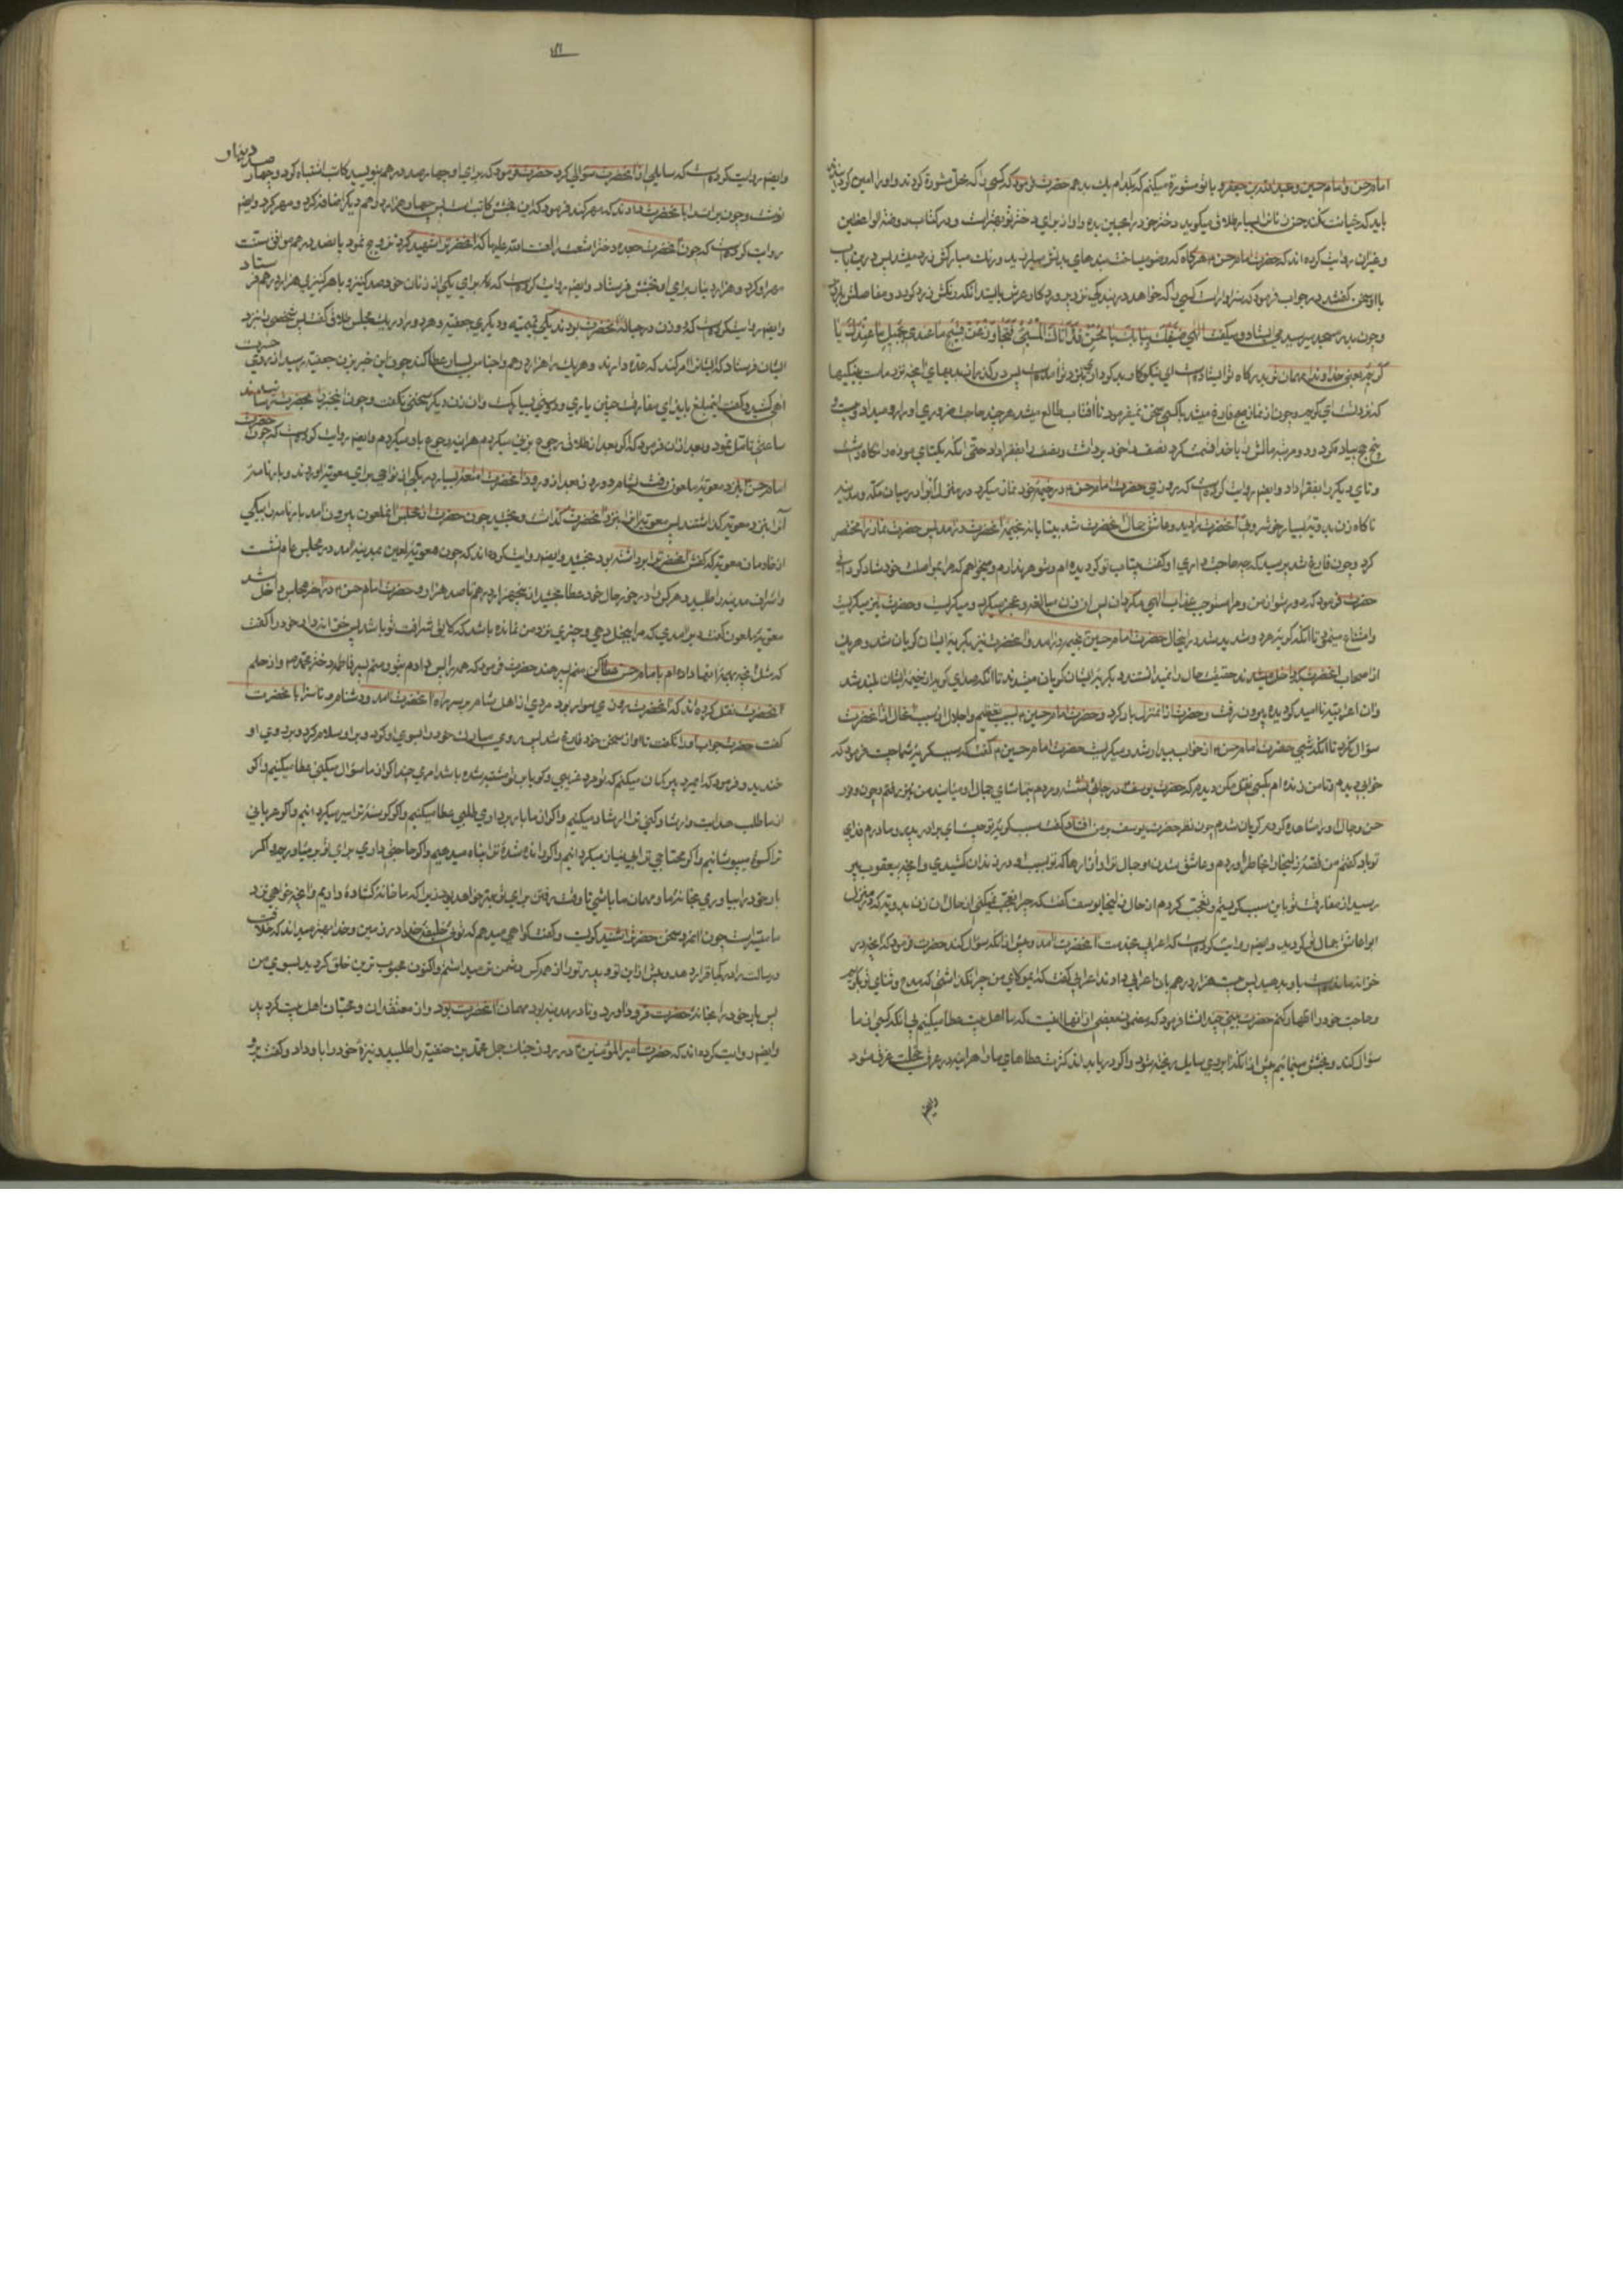 امام حسن و امام حسین و عبد الله بن جعفر و با تو مشورة میکنم که بکدام یک بدهم حضرت فرمود که کسی را که بحق مشورة کردند و او را امین کردند
باید که خیانت نکند حسن زنان را بسیار طلاق میگوید و دختر خود را بحسین بده و او از برای دختر تو بهتر است و در کتاب روضة الواعظین
و غیر آن روایت کرده اند که حضرت امام حسن هرگاه که وضو میساخت بندهای بدنش میلرزید و رنگ مبارکش زرد میشد پس در این باب
با او سخن گفتند در جواب فرمود که سزاوار است کسی را که خواهد در بندگی نزد پروردگار عرش بایستد آنکه رنگش زرد گردد و مفاصلش بلرزد
و چون بدر مسجد میرسید می ایستاد و میگفت الهی ضیفک ببابک یا محسن قد اتاک المسیئ فتجاوز عن قبیح ما عندی بجمیل ما عندک یا
کریم یعنی خداوندا مهمان تو بدرگاه تو ایستاده است ای نیکوکار بدکردار نزد تو آمده است پس درگذر از بدیهای آنچه نزد ماست بنیکیها
که نزد تست ای کریم و چون از نماز صبح فارغ میشد با کسی سخن نمیفرمود تا آفتاب طالع میشد هر چند حاجت ضروری او را رو میداد و بیست و
پنج حج پیاده کرد و دو مرتبه مالش را با خدا قسمت کرد نصف را خود برداشت و نصف را بفقرا داد حتی آنکه یکتای موزه را نگاه داشت
و تای دیگر را بفقرا داد و ایضا روایت کرده است که روزی حضرت امام حسن در خیمه خود نماز میکرد در منزل ابوا در میان مکه و مدینه
ناگاه زن بدویه بسیار خوش رو آنحضرت را دید و عاشق جمال آنحضرت شد بیتابانه بخیمه آنحضرت در آمد پس حضرت نماز را مختصر
کرد و چون فارغ شد پرسید که چه حاجت داری او گفت بیتاب تو گردیده ام و شوهر ندارم و میخواهم که مرا بمواصلت خود شاد گردانی
حضرت فرمود که دور شو از من و مرا مستوجب عذاب الهی مگردان پس آن زن مبالغه و عجز میکرد و میگریست و حضرت نیز میگریست
و امتناع مینمود تا آنکه گریه هر دو شدید شد در اینحال حضرت امام حسین بخیمه در آمد و آنحضرت نیز بگریه ایشان گریان شد و هر یک
از اصحاب آنحضرت که داخل میشدند حقیقت حال را نمیدانستند و بگریه ایشان گریان میشدند تا آنکه صدای گریه از خیمه ایشان بلند شد
و آن اعرابیه نا امید گردیده بیرون رفت و حضرت از آن منزل بار کرد و حضرت امام حسین بسبب تعظیم و اجلال از سبب آنحال از آنحضرت
سؤال نکرد تا آنکه شبی حضرت امام حسن از خواب بیدار شد و میگریست حضرت امام حسین گفت که سبب گریه شما چیست فرمود که
خوابی دیدم و تا من زنده ام بکسی نقل مکن دیدم که حضرت یوسف در جائی نشسته و مردم بتماشای جمال او میآیند من نیز رفتم و چون وفور
حسن و جمال او را مشاهده کردم گریان شدم چون نظر حضرت یوسف بر من افتاد گفت سبب گریه تو چیست ای برادر پدر و مادرم فدای
تو باد گفتم من قصه زلیخا را بخاطر آوردم و عاشق شدن او بجمال تو و آن آزارها که تو بسبب او در زندان کشیدی و آنچه بیعقوب پیر
رسید از مفارقت تو باین سبب گریستم و تعجب کردم از حال زلیخا یوسف گفت که چرا تعجب نمیکنی از حال آن زن بدویه که در منزل
ابوا عاشق جمال تو گردید و ایضا روایت کرده است که اعرابی بخدمت آنحضرت آمد و پیش از آنکه سؤال کند حضرت فرمود که آنچه در
خزانه مانده است باو بدهید پس بیست هزار درهم بآن اعرابی دادند اعرابی گفت که ای مولای من چرا نگذاشتی که مدح و ثنای تو بگویم
و حاجت خود را اظهار کنم حضرت بیتی چند انشا فرمود که مضمون بعضی از آنها اینست که ما اهل بیت عطا میکنیم بی آنکه کسی از ما
سؤال کند و بخشش مینمائیم پیش از آنکه آبروی سایل ریخته شود و اگر دریا بداند کثرت عطاهای ما را هر آینه در عرق خجلت غرق شود
وایضا روایت کرده است که سایلی از آنحضرت سؤالی کرد حضرت فرمود که برای او چهارصد درهم بنویسید کاتب اشتباه کرد و چهارصد دینار
نوشت و چون برات را بآنحضرت دادند که مهر کند فرمود که این بخشش کاتب است پس چهار هزار درهم دیگر اضافه کرد و مهر کرد و ایضا
روایت کرده است که چون آنحضرت جعده دختر اشعث را لعنت الله علیها که آنحضرت را شهید کرد تزویج نمود پانصد درهم موافق سنت
مهر او کرد و هزار دینار برای او بخشش فرستاد و ایضا روایت کرده است که برای یکی از زنان خود صد کنیز و با هر کنیزی هزار درهم فرستاد
و ایضا روایت کرده است که دو زن در حباله آنحضرت بودند یکی تمیمیه و دیگری جعفیه و هر دو را در یک مجلس طلاق گفت پس شخصی را نزد
ایشان فرستاد که ایشان را امر کند که عده دارند و هر یک را هزار درهم و اجناس بسیار عطا کند چون این خبر بزن جعفیه رسید از روی حسرت
آهی کشید و گفت این مبلغ باید از ای مفارقت چنین یاری و دوستی بسیار کم است و آن زن دیگر سخنی نگفت و چون این خبر را بحضرت رسانیدند
ساعتی تامل نمود و بعد از آن فرمود که اگر بعد از طلاق رجوع بزنی میکردم هر آینه رجوع باو میکردم و ایضا روایت کرده است که چون حضرت
امام حسن بنزد معویه ملعون رفت بشام در روز بعد از ورود آنحضرت امتعه بسیار در یکی از نواحی برای معویه آوردند و بارنامه
آن را نزد معویه گذاشتند پس معویه آن را نزد آنحضرت گذاشت و بخشید چون حضرت از مجلس آن ملعون بیرون آمد بارنامه را بیکی
از خادمان معویه که کفش آنحضرت را برداشته بود بخشید و ایضا روایت کرده اند که چون معویه لعین بمدینه آمد در مجلس عام نشست
و اشراف مدینه را طلبید و هر کس را در خور حال خود عطا بخشید از پنجهزار درهم تا صد هزار و حضرت امام حسن در آخر مجلس داخل شد
معویه ملعون گفت دیر آمدی که مرا ببخل نسبت دهی و چیزی نزد من نمانده باشد که لایق شرافت تو باشد پس خزانه دار خود را گفت
که مثل آنچه بهمه اینها داده ام بامام حسن عطا کن منم پسر هند حضرت فرمود که همه را پس دادم بتو و منم پسر فاطمه دختر محمد و از حلم
آنحضرت نقل کرده اند که آنحضرت روزی سوار بود مردی از اهل شام بر سر راه آنحضرت آمد و دشنام و ناسزا بآنحضرت
گفت حضرت جواب او را نگفت تا او از سخن خود فارغ شد پس روی مبارک خود را بسوی او کرد و بر او سلام کرد و بر روی او
خندید و فرمود که ای مرد پیر گمان میکنم که تو مرد غریبی و گویا بر تو مشتبه شده باشد امری چند اگر از ما سؤال میکنی عطا میکنیم و اگر
از ما طلب هدایت و ارشاد کنی ترا ارشاد میکنیم و اگر از ما باربرداری طلبی عطا میکنیم و اگر گرسنه ترا سیر میکردانیم و اگر عریانی
ترا کسوه میپوشانیم و اگر محتاجی ترا بی نیاز میکردانیم و اگر رانده شده ترا پناه میدهیم و اگر حاجتی داری برای تو بر میآوریم و اگر
بار خود را بیاوری بخانه ما و مهمان ما باشی تا وقت رفتن برای تو بهتر خواهد بود زیرا که ما خانه کشاده داریم و آنچه خواهی نزد
ما میسر است چون آن مرد سخن حضرت را شنید گریست و گفت گواهی میدهم که توئی خلیفه خدا در زمین و خدا بهتر میداند که خلافت
و رسالت را در کجا قرار دهد و پیش از این تو و پدر تو را از همه کس دشمن تر میداشتم و اکنون محبوب ترین خلق گردید بسوی من
پس بار خود را بخانه حضرت فرود آورد و تا در مدینه بود مهمان آنحضرت بود و از معتقدان و محبان اهل بیت گردید
وایضا روایت کرده اند که حضرت امیر المؤمنین در روز جنگ جمل محمد بن حنفیه را طلبید و نیزه خود را باو داد و گفت برو